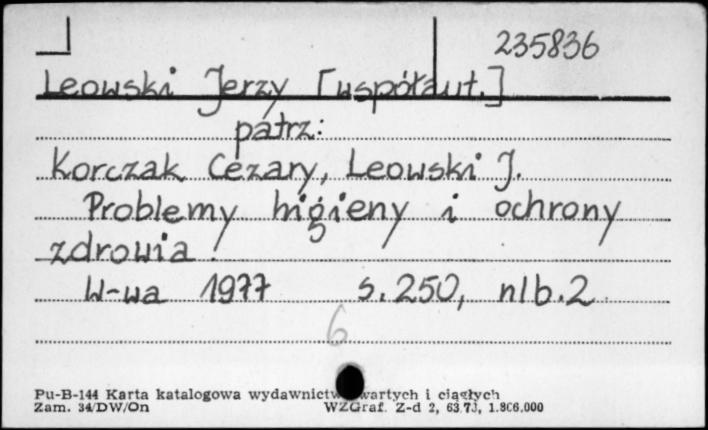 235836
Leowski Jerzy [współaut.]
patrz:
Korczak Cezary, Leowski J.
Problemy higieny i ochrony
zdrowia.
W-wa 1977 s. 250, nlb. 2
6
Pu-B-144 Karta katalogowa wydawnictw zwartych i ciągłych
Zam. 34/DW/On WZGraf. Z-d 2,